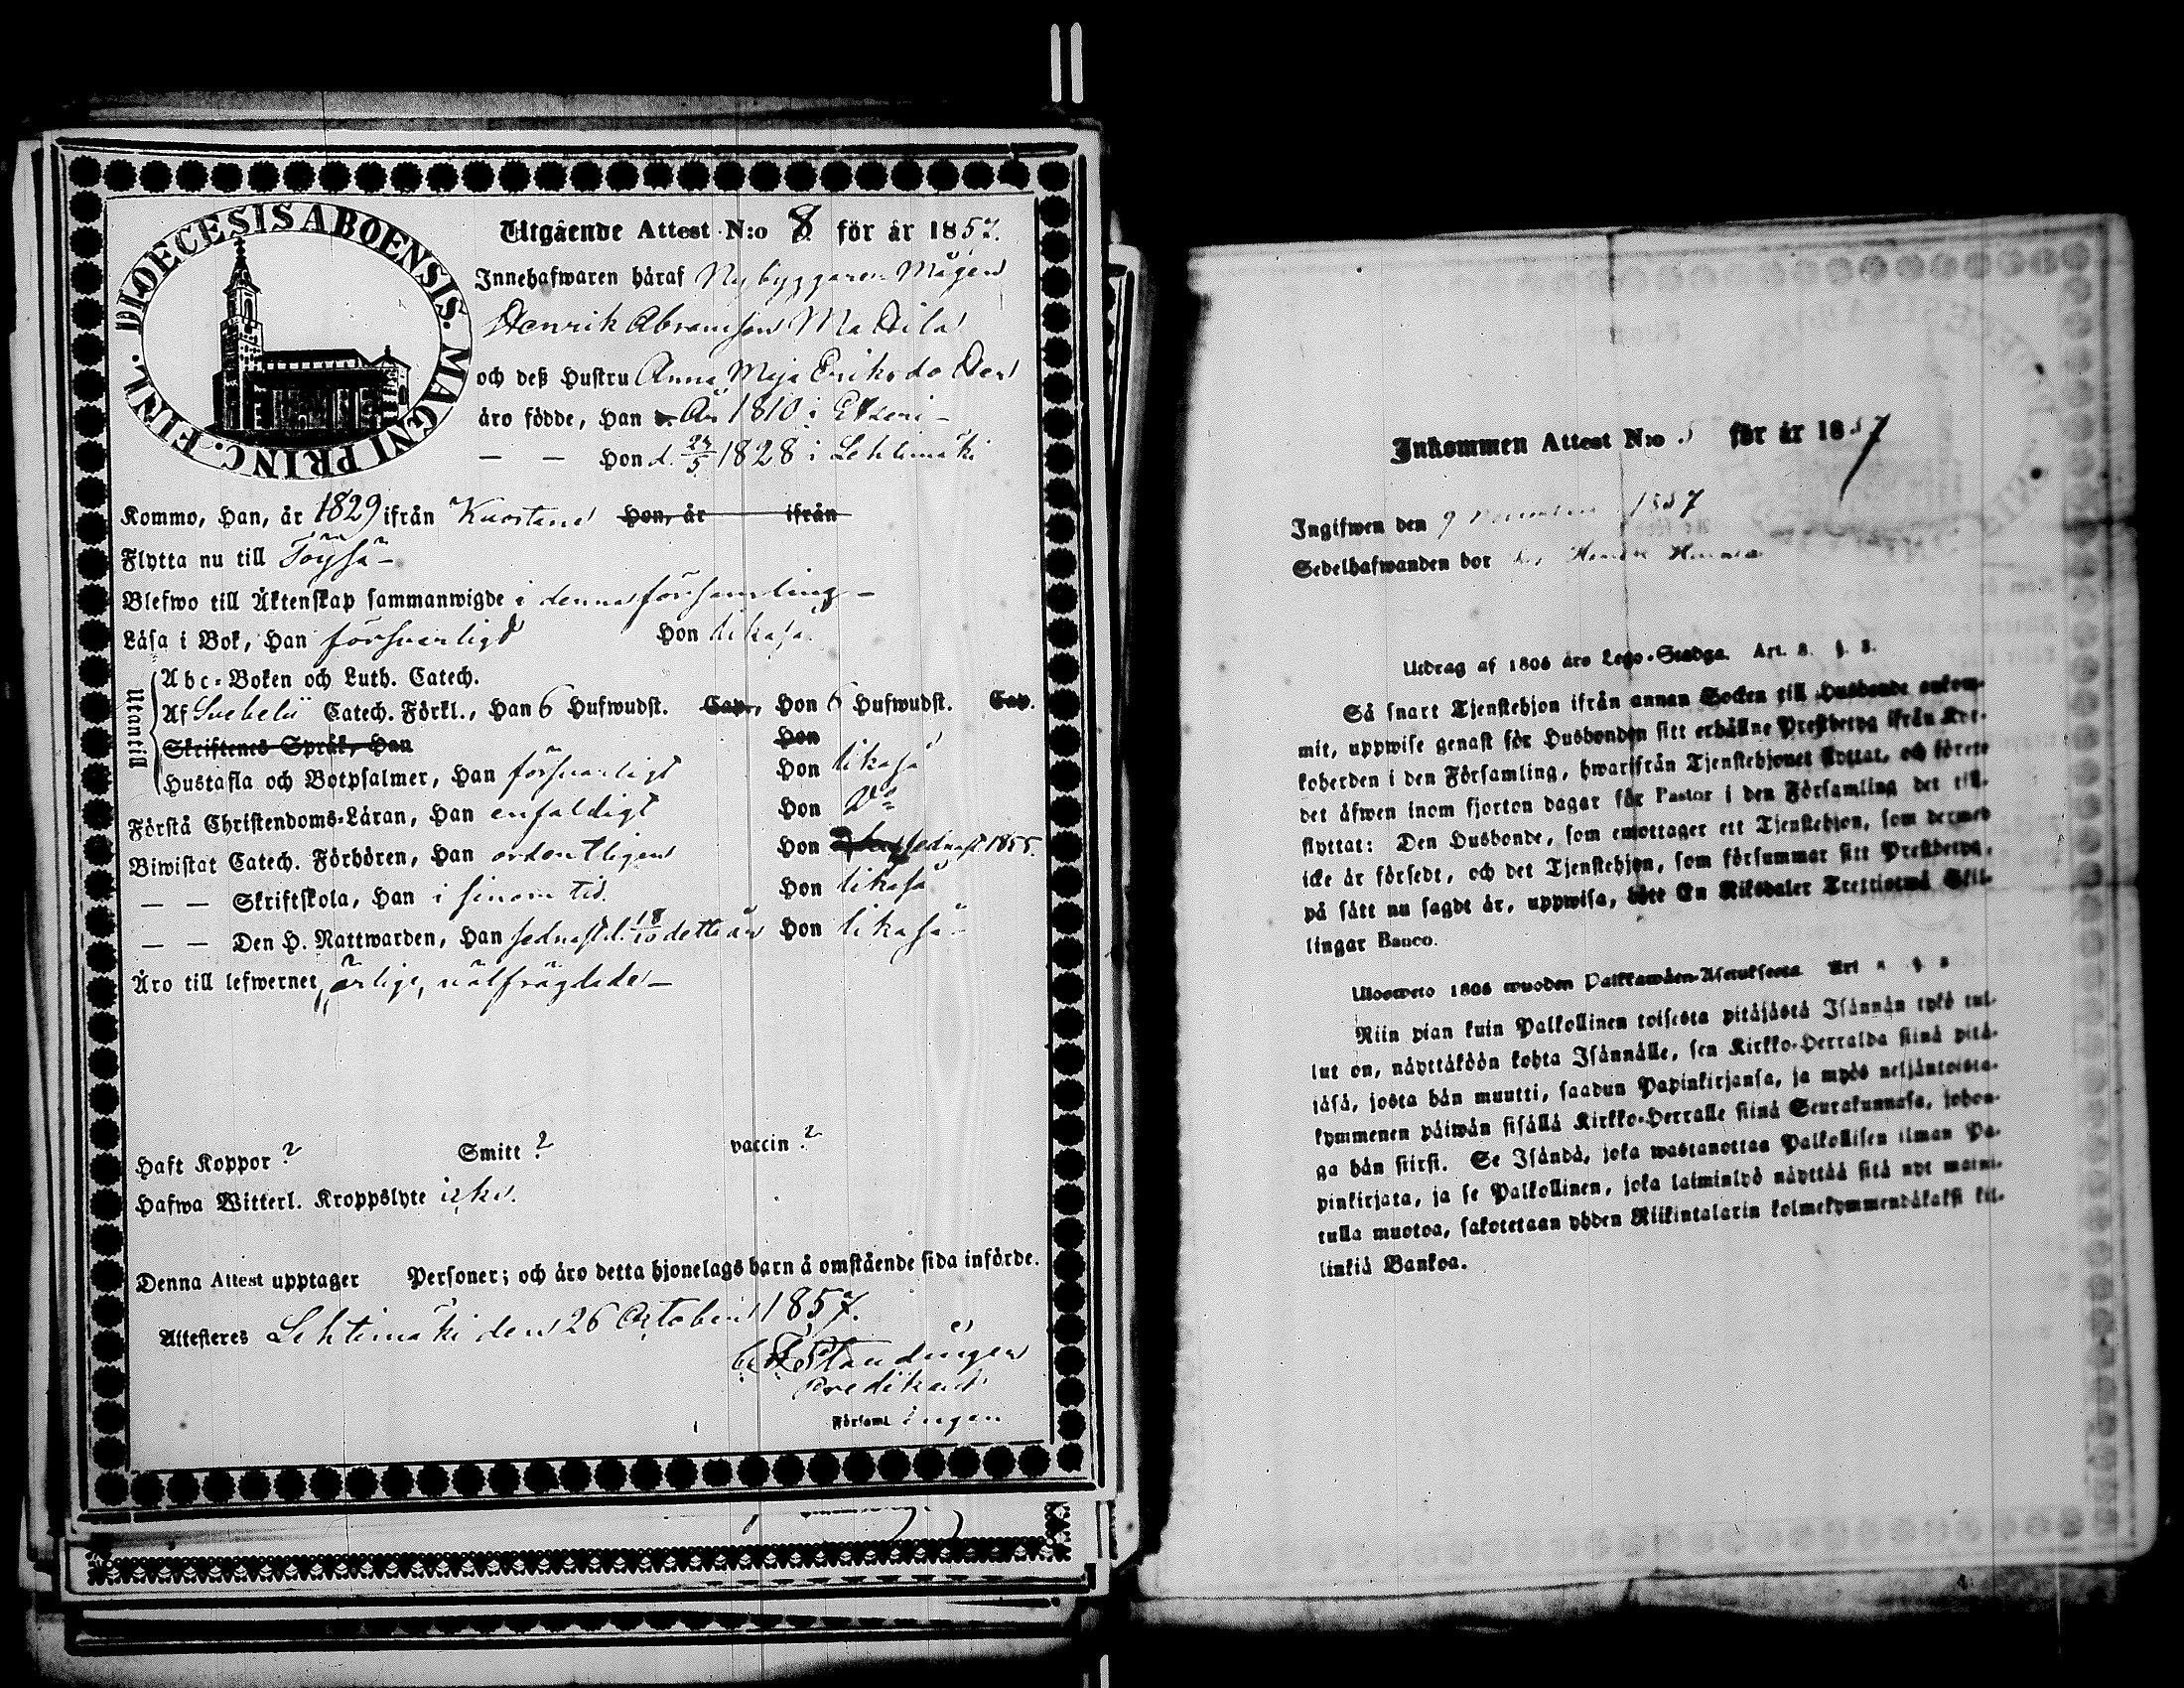 DIOECESIS ABOENSIS. MAGNI PRINC. FINL.
Utgående Attest N:o 8. för år 1857.
Innehafwaren häraf Nybyggaren Mågen
Henrik Abramson Mattila
och deß Hustru Anna Maja Eriksdotter
äro födde, Han År 1810 i Etseri –
— — Hon d. 24/5 1828 i Lehtimäki
Kommo, Han, år 1829 ifrån Kuortane Hon, år ifrån
Flytta nu till Töysä –
Blefwo till Äktenskap sammanwigde i denna församling –
Läsa i Bok, Han försvarligt Hon likaså
Utantill
Abc-Boken och Luth. Catech.
Af Svebelii Catech. Förkl., Han 6 Hufwudst. Cap., Hon 6 Hufwudst. Cap.
Skriftenes Språk, Han Hon
Hustafla och Botpsalmer, Han försvarligt Hon likaså
Förstå Christendoms-Läran, Han enfaldigt Hon Do
Biwistat Catech. Förhören, Han ordentligen Hon sednast 1855.
— — Skriftskola, Han i sinom tid. Hon likaså
— — Den H. Nattwarden, Han sednast d. 18/10 detta år Hon likaså –
Äro till lefwernet ärlige, välfrägdade –
Haft Koppor ? Smitt ? vaccin ?
Hafwa Witterl. Kroppslyte icke.
Denna Attest upptager Personer; och äro detta hjonelags barn å omstående sida införde.
Attesteres Lehtimäki den 26 October 1857.
Standinger
Predikant
Församl. ingen
Inkommen Attest N:o 5 för år 1857
Ingifwen den 9 1857
Sedelhafwanden bor
Utdrag af 1805 års Lego-Stadga. Art. 8. §. 3.
Så snart Tjenstehjon ifrån annan Socken till Husbonde ankom-
mit, uppwise genast för Husbonden sitt erhållne Prestbetyg ifrån Kyr-
koherden i den Församling, hwarifrån Tjenstehjonet flyttat, och förete
det äfwen inom fjorton dagar för Pastor i den Församling det till-
flyttat: Den Husbonde, som emottager ett Tjenstehjon, som dermed
icke är försedt, och det Tjenstehjon, som försummar sitt Prestbetyg,
på sätt nu sagdt är, uppwisa, böte En Riksdaler Trettiotwå Skil-
lingar Banco.
Uloswето 1805 wuoden Palkkawäen-Asetuksesta Art 8 §. 3
Niin pian kuin Palkollinen toisesta pitäjästä Isännän tykö tul-
lut on, näyttäköön kohta Isännälle, sen Kirkko-Herralda siinä pitä-
jäsä, josta hän muutti, saadun Papinkirjansa, ja myös neljäntoista-
kymmenen päiwän sisällä Kirkko-Herralle siinä Seurakunnasa, johon-
ga hän siirsi. Se Isändä, joka wastanottaa Palkollisen ilman Pa-
pinkirjata, ja se Palkollinen, joka laiminlyö näyttää sitä nyt maini-
tulla muotoa, sakotetaan yhden Riikintalarin kolmekymmendäkaksi kil-
linkiä Bankoa.